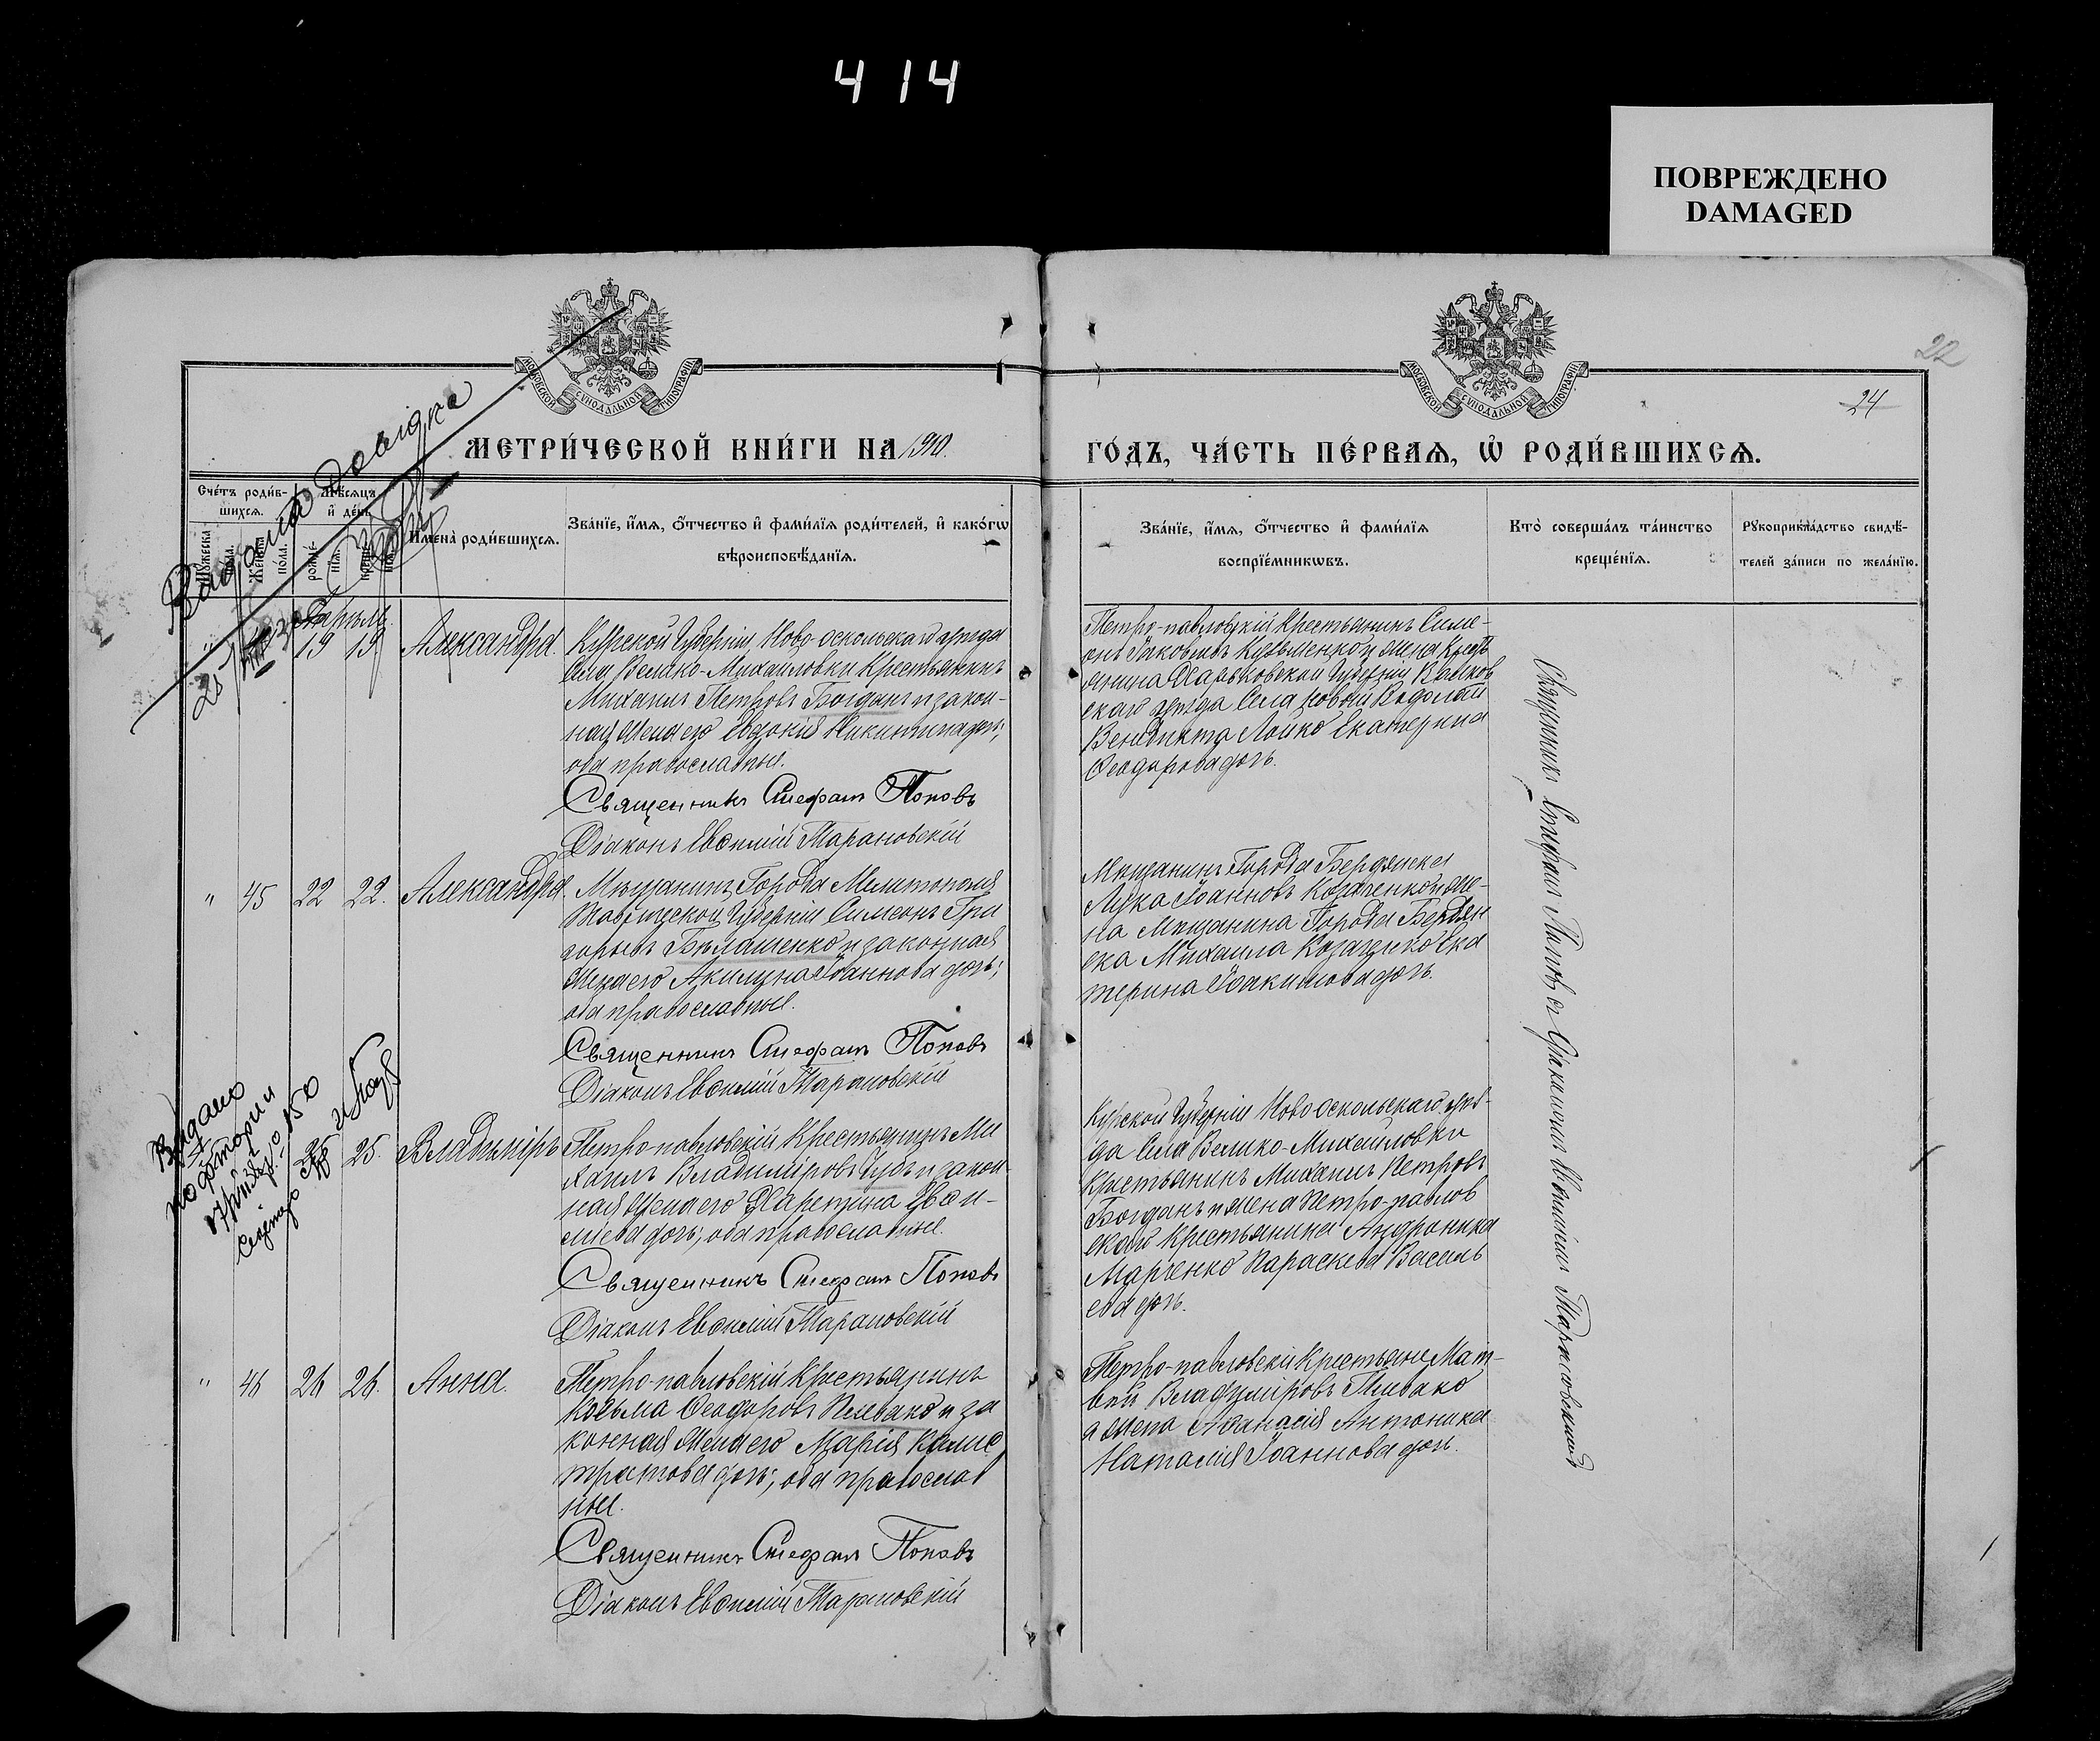 414
ПОВРЕЖДЕНО
DAMAGED
22
24
МОСКОВСКОЙ СѴНОДАЛЬНОЙ ТИПОГРАФІИ
МОСКОВСКОЙ СѴНОДАЛЬНОЙ ТИПОГРАФІИ
МЕТРИ́ЧЕСКОЙ КНИ́ГИ НА 1910.
ГО́ДЪ, ЧА́СТЬ ПЕ́РВАѦ, Ѡ҆ РОДИ́ВШИХСѦ.
Счетъ роди́в-
шихсѧ.
Мѣ́сѧцъ
и҆ де́нь
И҆мена̀ роди́вшихсѧ.
Зва́нїе, и҆́мѧ, ѻ҆́тчество и҆ фами́лїѧ роди́телей, и҆ како́гѡ
вѣроисповѣ́данїѧ.
Зва́нїе, и҆́мѧ, ѻ҆́тчество и҆ фами́лїѧ
воспрїе́мникѡвъ.
Кто̀ соверша́лъ та́инство
креще́нїѧ.
Рꙋкоприкла́дство свидѣ́-
телей за́писи по жела́нїю.
Апрѣль
19 19 Александра.
Курской Губерніи, Ново-оскольскаго уѣзда
Села Велико-Михайловки Крестьянинъ
Михаилъ Петровъ Богданъ и закон-
ная жена его Евдокія Никитина дочь,
оба православные.
Священникъ Стефанъ Поповъ
Діаконъ Евѳимій Тарановскій
Петро-павловскій Крестьянинъ Симе-
онъ Іаковлевъ Кузьменко и жена Кресть
янина Харьковской Губерніи Валков
скаго уѣзда Села Новой Водолаги
Венедикта Лойко Екатерина
Ѳеодорова дочь.
" 45 22 22. Александра.
Мѣщанинъ Города Мелитополя
Таврической Губерніи Симеонъ Гри
горьевъ и законная
жена его Акилина Іоаннова дочь;
оба православные.
Священникъ Стефанъ Поповъ
Діаконъ Евѳимій Тарановскій
Мѣщанинъ Города Бердянска
Лука Іоанновъ Козаченко и же-
на Мѣщанина Города Бердян
ска Михаила Козаченко Ека
терина Іоакимова дочь.
25 25. Владиміръ
Петро-павловскій Крестьянинъ Ми
хаилъ Владиміровъ Губъ и закон
ная жена его Харитина Евѳи-
міева дочь; оба православные.
Священникъ Стефанъ Поповъ
Діаконъ Евѳимій Тарановскій
Курской Губерніи Ново Оскольскаго уѣз-
да Села Велико-Михайловки
Крестьянинъ Михаилъ Петровъ
Богданъ и жена Петро-павлов
скаго Крестьянина Андроника
Марченко Параскева Василь
ева дочь.
" 46 26 26. Анна.
Петро-павловскій Крестьянинъ
Косьма Ѳеодоровъ Пливако и за
конная жена его Марія Калис
тратова дочь; оба православ
ные.
Священникъ Стефанъ Поповъ
Діаконъ Евѳимій Тарановскій
Петро-павловскій Крестьяне Мат-
вей Владиміровъ Пливако
а жена Аѳанасія Антоника
Наталія Іоаннова дочь.
Священникъ Стефанъ Поповъ съ Діакономъ Евѳиміемъ Тарановскимъ